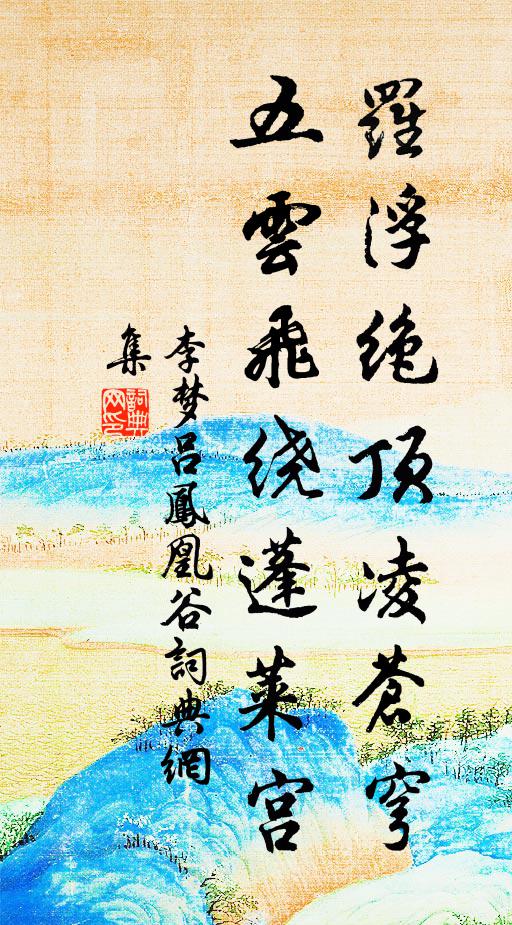 羅浮绝頂凌蒼穹
五雲飛绕蓬莱宫
李梦吕鳳凰谷詞典網
集
詞典
网印